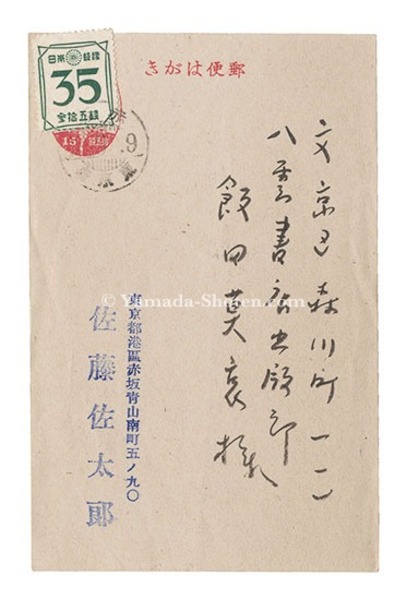 郵便はがき
日本郵便
35
参拾五銭
15
.9
東京
文京区森川町一一一
八雲書店出版部
飯田莫哀様
東京都港區赤坂青山南町五ノ九〇
佐藤佐太郎
© Yamada-Shoten.com